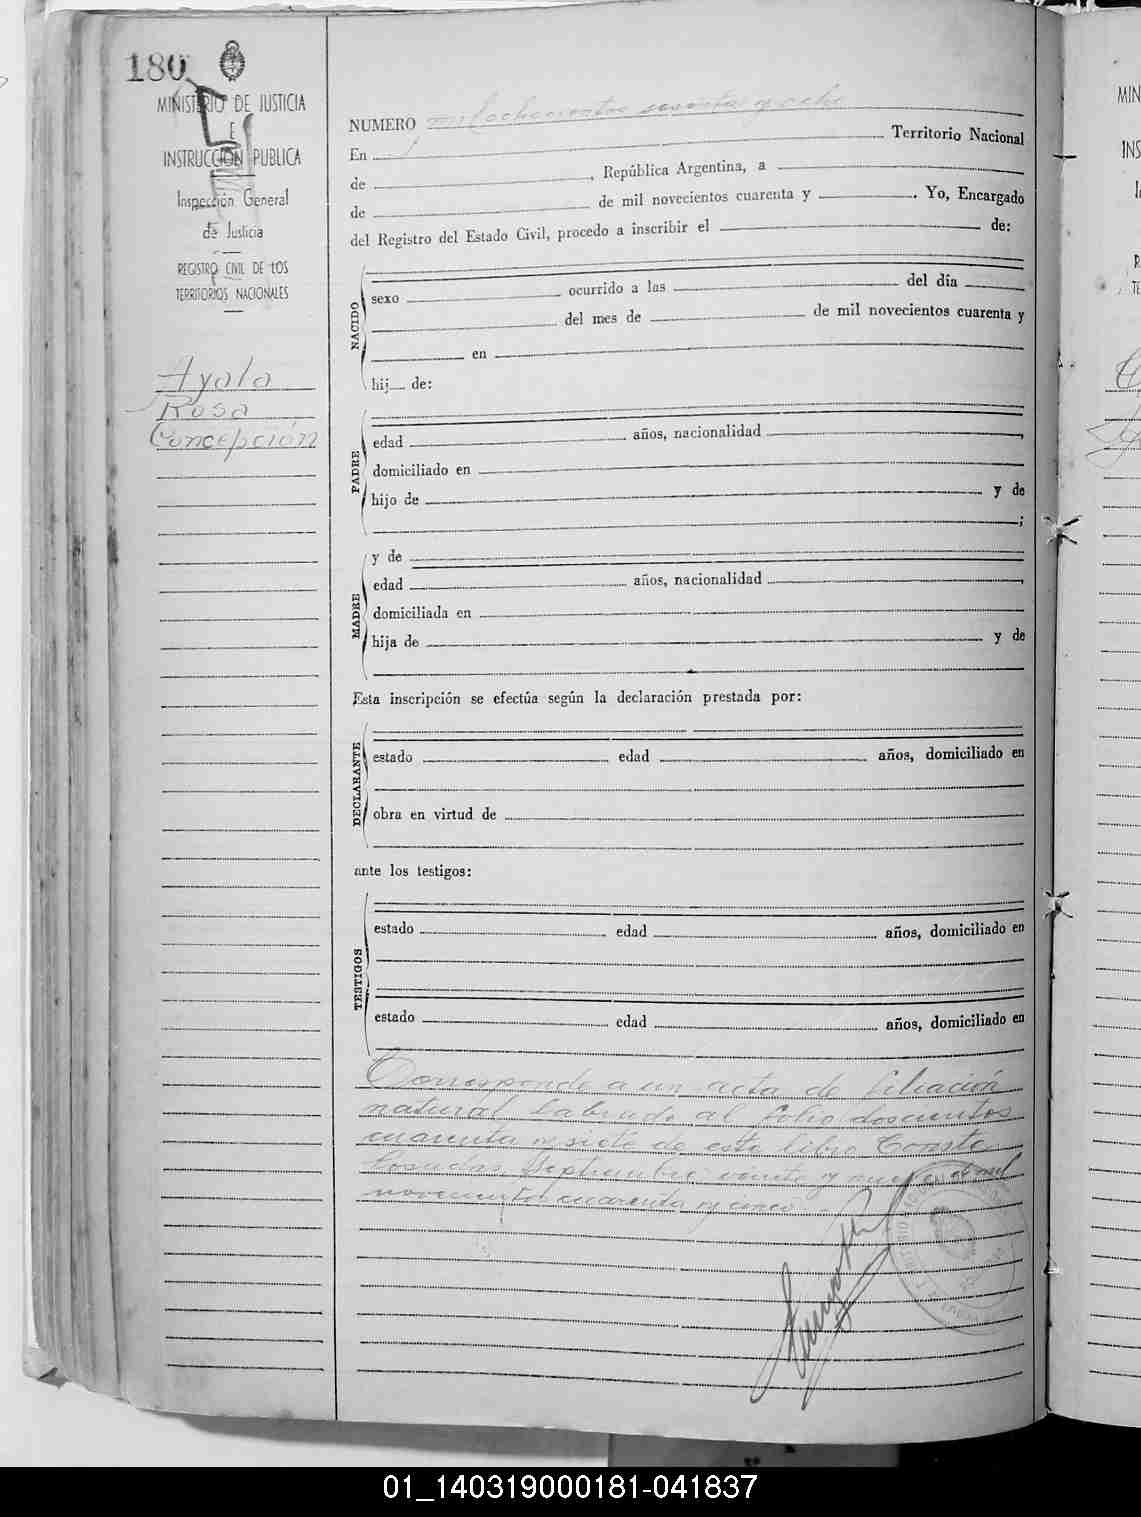 180
MINISTERIO DE JUSTICIA
E
INSTRUCCION PUBLICA
Inspección General
de Justicia
REGISTRO CIVIL DE LOS
TERRITORIOS NACIONALES
Ayala
Rosa
Concepción
NUMERO mil ochocientos sesenta y ocho
En Territorio Nacional
de , República Argentina, a
de de mil novecientos cuarenta y . Yo, Encargado
del Registro del Estado Civil, procedo a inscribir el de:
NACIDO
sexo ocurrido a las del día
del mes de de mil novecientos cuarenta y
en
hij de:
PADRE
edad años, nacionalidad ,
domiciliado en
hijo de y de
;
MADRE
y de
edad años, nacionalidad ,
domiciliada en
hija de y de
Esta inscripción se efectúa según la declaración prestada por:
DECLARANTE
estado edad años, domiciliado en
obra en virtud de
ante los testigos:
TESTIGOS
estado edad años, domiciliado en
estado edad años, domiciliado en
Corresponde a un acta de filiación
natural labrada al folio doscientos
cuarenta y siete de este libro Conste
Posadas, Septiembre veinte y de mil
novecientos cuarenta y cinco
01_140319000181-041837